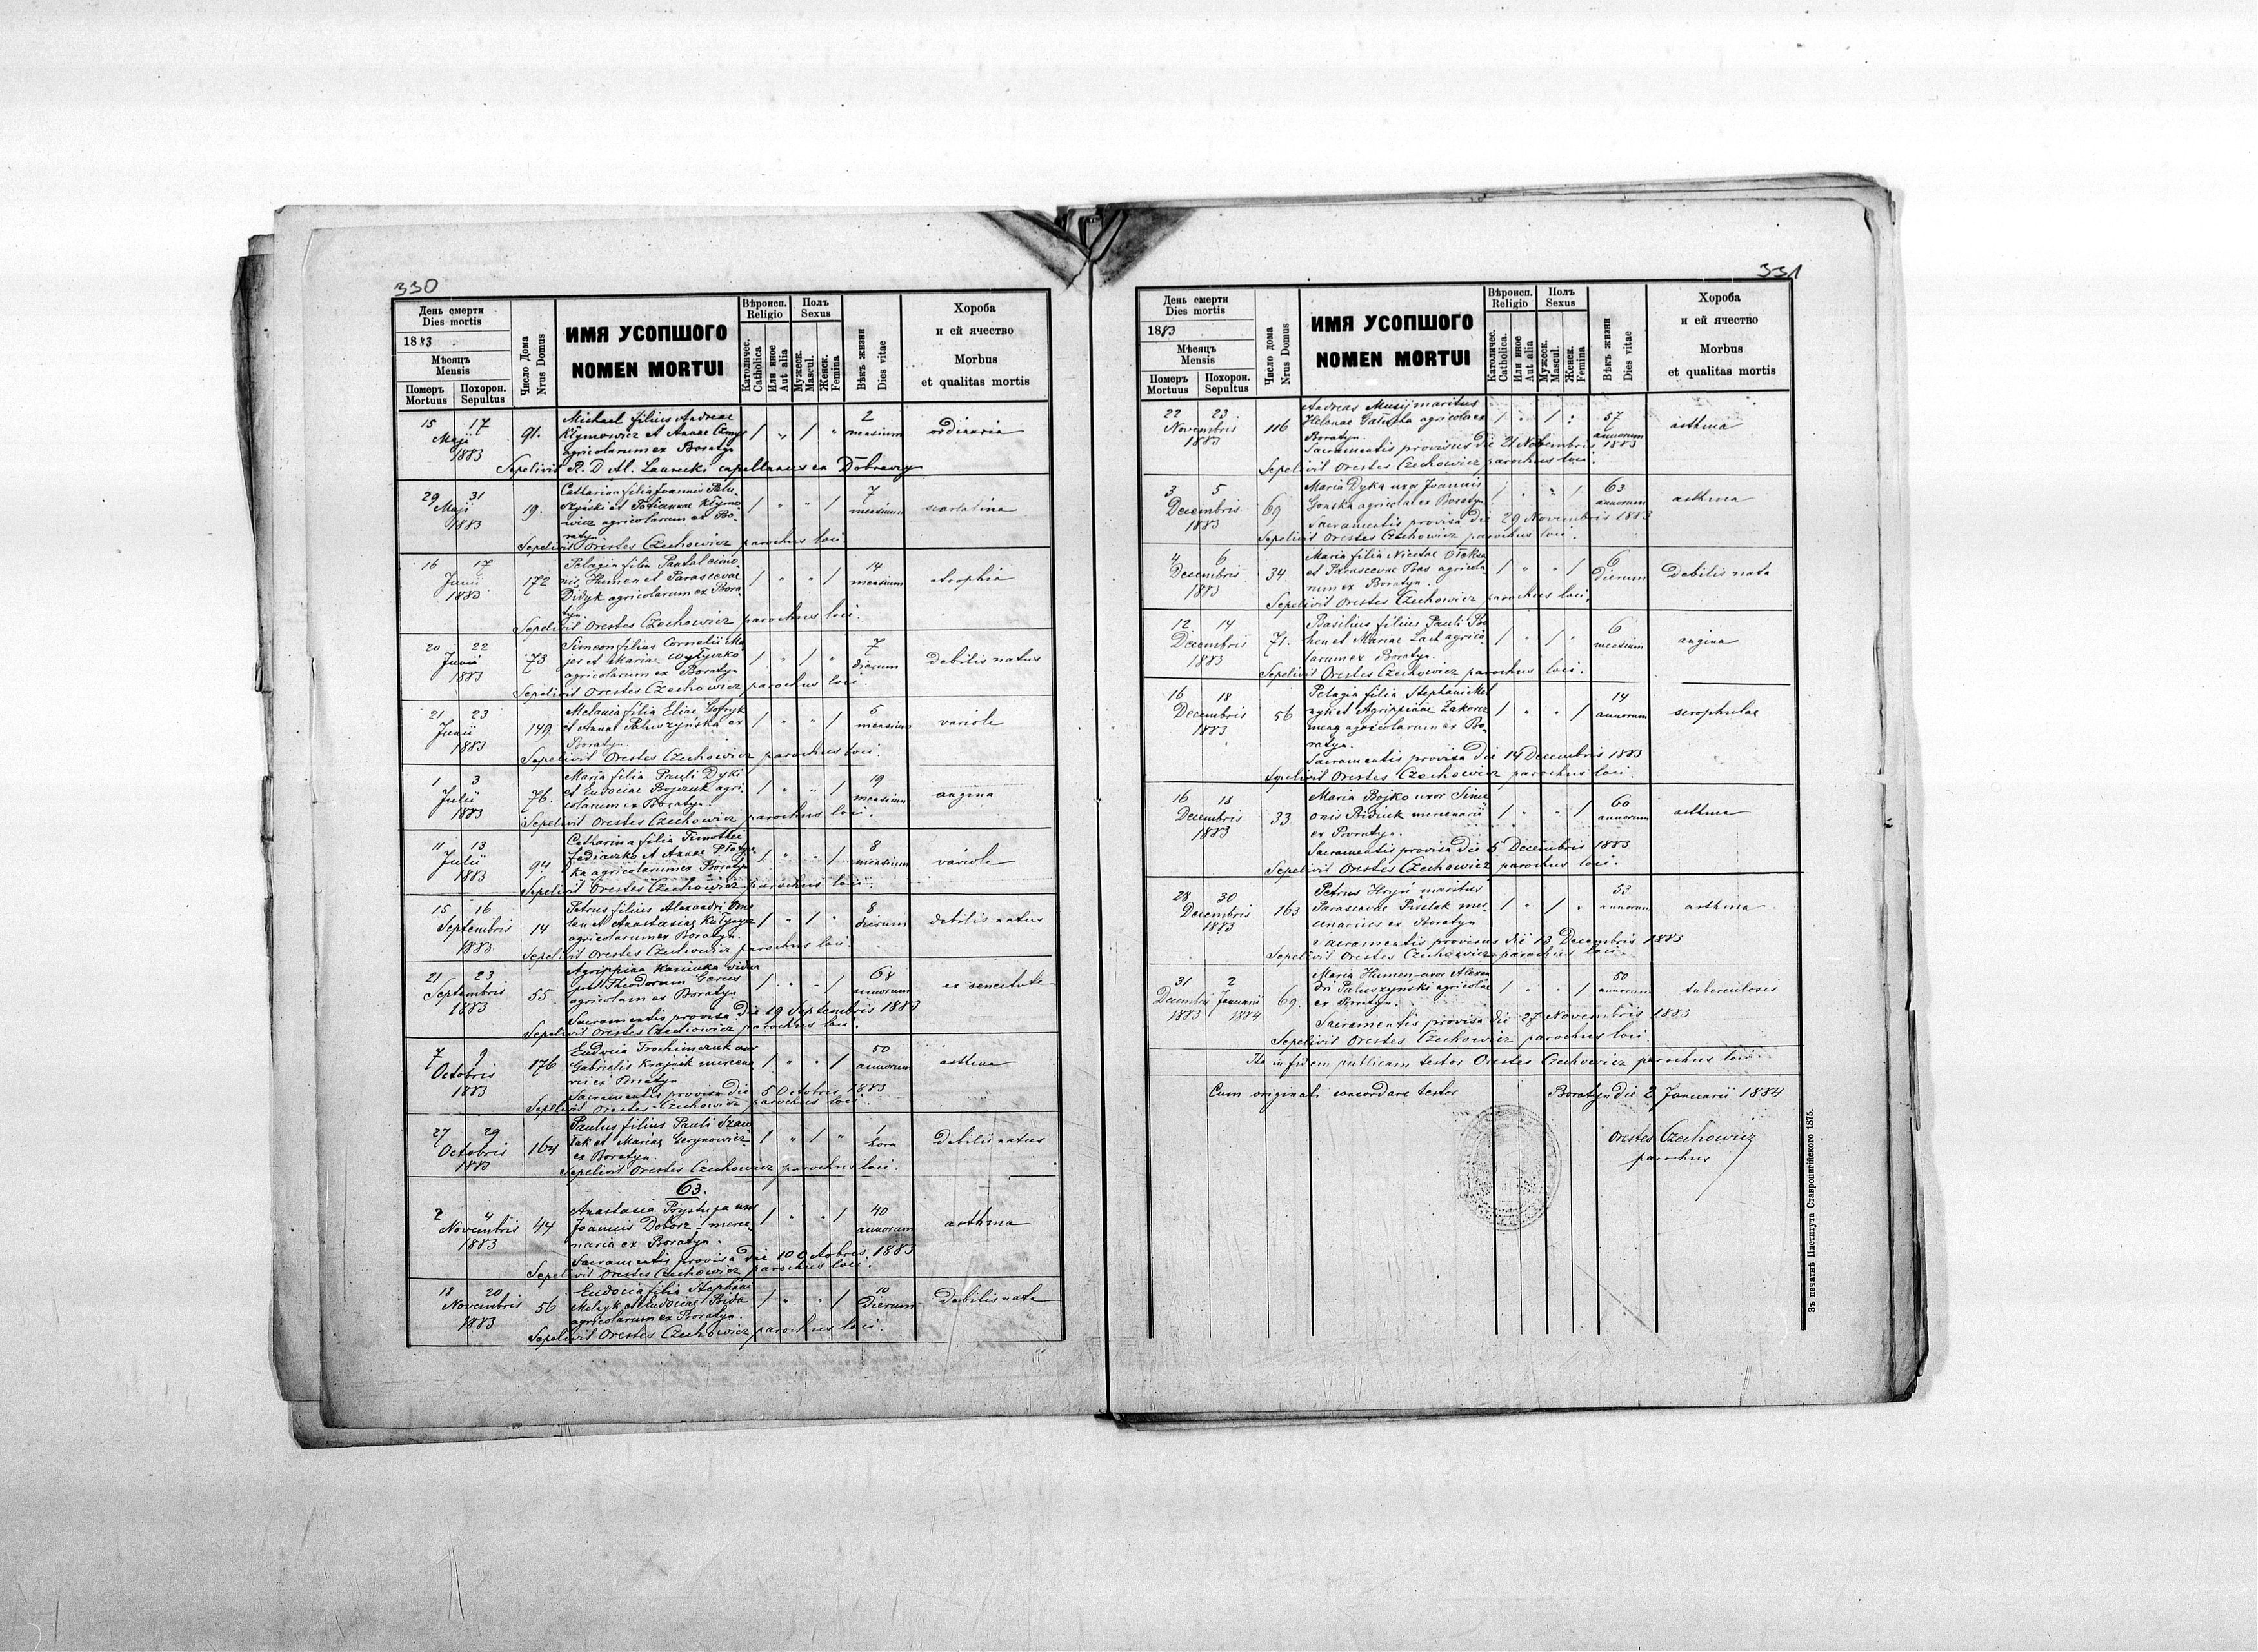 330
День смерти
Dies mortis
1883.
Мѣсяцъ
Mensis
Померъ Похорон.
Mortuus Sepultus
Число Дома
Nrus Domus
ИМЯ УСОПШОГО
NOMEN MORTUI
Вѣроисп.
Religio
Католичес.
Catholica
Или иное
Aut alia
Полъ
Sexus
Мужеск.
Mascul.
Женск.
Femina
Вѣкъ жизни
Dies vitae
Хороба
и ей ячество
Morbus
et qualitas mortis
15 17 Maji 1883 91. Michael filius Andreae
Kłymowicz et Annae
agricolarum ex Boratyn / " / " 2 mensium ordinaria
Sepelivit R. D. Al. capellanus ex Dobraczyn
29 31 Maji 1883 19. Catharina filia Joannis Palu-
szyński et Tatiannae Kłymo-
wicz agricolarum ex Bo-
ratyn / " " / 7 mensium scarlatina
Sepelivit Orestes Czechowicz parochus loci.
16 17 Junii 1883 172 Pelagia filia Pantalaimo-
nis Humen et Parascevae
Didyk agricolarum ex Bora-
tyn / " " / 14 mensium atrophia
Sepelivit Orestes Czechowicz parochus loci.
20 22 Junii 1883 73 Simeon filius Cornelii Ma-
jer et Mariae Wytyczko
agricolarum ex Boratyn / " / " 7 dierum debilis natus
Sepelivit Orestes Czechowicz parochus loci.
21 23 Junii 1883 149 Melania filia Eliae
et Annae Paluszyńska ex
Boratyn. / " " / 6 mensium variole
Sepelivit Orestes Czechowicz parochus loci.
1 3 Julii 1883 76. Maria filia Pauli Dyki
et Eudociae Bojczuk agri-
colarum ex Boratyn. / " " / 19 mensium angina
Sepelivit Orestes Czechowicz parochus loci.
11 13 Julii 1883 94 Catharina filia Timothei
Fedaczko et Annae
agricolarum ex Boratyn / " " / 8 mensium variole
Sepelivit Orestes Czechowicz parochus loci.
15 16 Septembris 1883. 14 Petrus filius Alexandri Ome-
lan et Anastasiae
agricolarum ex Boratyn. / " / " 8 dierum debilis natus
Sepelivit Orestes Czechowicz parochus loci.
21 23 Septembris 1883 55. Agrippina Kaminka vidua
post Theodorum
agricolam ex Boratyn / " " / 68 annorum ex senectute
Sacramentis provisa die 19 Septembris 1883
Sepelivit Orestes Czechowicz parochus loci.
7 9 Octobris 1883 176 Eudocia Trochimczuk uxor
Gabrielis Krajnik mercena-
rii ex Boratyn / " " / 50 annorum asthma
Sacramentis provisa die 5 Octobris 1883
Sepelivit Orestes Czechowicz parochus loci.
27 29 Octobris 1883 164 Paulus filius Pauli Szaw-
łak et Mariae Gerynowicz
ex Boratyn. / " / " 1 hora debilis natus
Sepelivit Orestes Czechowicz parochus loci.
63.
2 4 Novembris 1883 44 Anastasia Prystupa uxor
Joannis Dobosz merce-
naria ex Boratyn. / " " / 40 annorum asthma
Sacramentis provisa die 10 Octobris 1883
Sepelivit Orestes Czechowicz parochus loci.
18 20 Novembris 1883 56 Eudocia filia Stephani
Melnyk et Eudociae Bida
agricolarum ex Boratyn. / " " / 10 dierum Debilis nata
Sepelivit Orestes Czechowicz parochus loci.
331
День смерти
Dies mortis
1883
Мѣсяцъ
Mensis
Померъ Похорон.
Mortuus Sepultus
Число дома
Nrus Domus
ИМЯ УСОПШОГО
NOMEN MORTUI
Вѣроисп.
Religio
Католичес.
Catholica.
Или иное
Aut alia
Полъ
Sexus
Мужеск.
Mascul.
Женск.
Femina
Вѣкъ жизни
Dies vitae
Хороба
и ей ячество
Morbus
et qualitas mortis
22 23. Novembris 1883 116 Andreas Musij maritus
Helenae Gałuszka agricola ex
Boratyn. / " / " 57 annorum asthma
Sacramentis provisus die 21 Novembris 1883
Sepelivit Orestes Czechowicz parochus loci.
3 5 Decembris 1883 69 Maria Dyka uxor Joannis
agricolae ex Boratyn / " " / 63 annorum asthma
Sacramentis provisa die 29 Novembris 1883
Sepelivit Orestes Czechowicz parochus loci.
4 6 Decembris 1883 34. Maria filia Nicetae Ołeksa
et Parascevae Bas agricola-
rum ex Boratyn. / " " / 6 Dierum Debilis nata
Sepelivit Orestes Czechowicz parochus loci.
12 14 Decembris 1883 71. Basilius filius Pauli
et Mariae agrico-
larum ex Boratyn. / " / " 6 mensium angina
Sepelivit Orestes Czechowicz parochus loci.
16 18 Decembris 1883 56 Pelagia filia Stephani Mel-
nyk et Agrippinae
agricolarum ex Bo-
ratyn. / " " / 14 annorum scrophulae
Sacramentis provisa die 14 Decembris 1883
Sepelivit Orestes Czechowicz parochus loci.
16 18 Decembris 1883 33 Maria Bojko uxor Sime-
onis mercenarii
ex Boratyn. / " " / 60 annorum asthma
Sacramentis provisa die 5 Decembris 1883
Sepelivit Orestes Czechowicz parochus loci.
28 30 Decembris 1883 163 Petrus Hryń maritus
Parascevae Piselak mer-
cenarius ex Boratyn / " / " 53 annorum asthma
Sacramentis provisus die 13 Decembris 1883
Sepelivit Orestes Czechowicz parochus loci.
31 Decembris 1883 2 Januarii 1884 69. Maria Humen uxor Alexan-
dri Paluszynski agricolae
ex Boratyn. / " " / 50 annorum tuberculosis
Sacramentis provisa die 27 Novembris 1883
Sepelivit Orestes Czechowicz parochus loci.
Ita in fidem publicam testor Orestes Czechowicz parochus loci
Cum originali concordare testor Boratyn die 2 Januarii 1884
Orestes Czechowicz
parochus
Зъ печатнѣ Института Ставропигійского 1875.